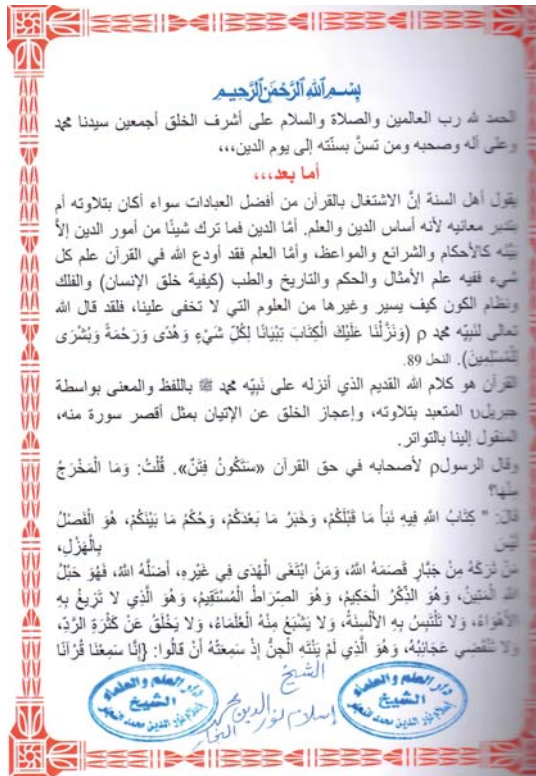 بِسْمِ اللَّهِ الرَّحْمَنِ الرَّحِيمِ
الحمد لله رب العالمين والصلاة والسلام على أشرف الخلق أجمعين سيدنا محمد
وعلى آله وصحبه ومن تسنَّ بسنّته إلى يوم الدين،،،
أما بعد،،،
يقول أهل السنة إنَّ الاشتغال بالقرآن من أفضل العبادات سواء أكان بتلاوته أم
بتدبر معانيه لأنه أساس الدين والعلم. أمَّا الدين فما ترك شيئًا من أمور الدين إلاَّ
بيَّنه كالأحكام والشرائع والمواعظ، وأمَّا العلم فقد أودع الله في القرآن علم كل
شيء ففيه علم الأمثال والحكم والتاريخ والطب (كيفية خلق الإنسان) والفلك
ونظام الكون كيف يسير وغيرها من العلوم التي لا تخفى علينا، فلقد قال الله
تعالى لنبيّه محمد ρ (وَنَزَّلْنَا عَلَيْكَ الْكِتَابَ تِبْيَانًا لِكُلِّ شَيْءٍ وَهُدًى وَرَحْمَةً وَبُشْرَى
لِلْمُسْلِمِينَ). النحل 89.
القرآن هو كلام الله القديم الذي أنزله على نَبيِّه محمد ﷺ باللفظ والمعنى بواسطة
جبريلυ المتعبد بتلاوته، وإعجاز الخلق عن الإتيان بمثل أقصر سورة منه،
المنقول إلينا بالتواتر.
وقال الرسولρ لأصحابه في حق القرآن «سَتَكُونُ فِتَنٌ». قُلْتُ: وَمَا الْمَخْرَجُ
مِنْهَا؟
قَالَ: " كِتَابُ اللَّهِ فِيهِ نَبَأُ مَا قَبْلَكُمْ، وَخَبَرُ مَا بَعْدَكُمْ، وَحُكْمُ مَا بَيْنَكُمْ، هُوَ الْفَصْلُ
لَيْسَ بِالْهَزْلِ،
مَنْ تَرَكَهُ مِنْ جَبَّارٍ قَصَمَهُ اللَّهُ، وَمَنْ ابْتَغَى الْهُدَى فِي غَيْرِهِ، أَضَلَّهُ اللَّهُ، فَهُوَ حَبْلُ
اللَّهِ الْمَتِينُ، وَهُوَ الذِّكْرُ الْحَكِيمُ، وَهُوَ الصِّرَاطُ الْمُسْتَقِيمُ، وَهُوَ الَّذِي لَا تَزِيغُ بِهِ
الْأَهْوَاءُ، وَلَا تَلْتَبِسُ بِهِ الْأَلْسِنَةُ، وَلَا يَشْبَعُ مِنْهُ الْعُلَمَاءُ، وَلَا يَخْلَقُ عَنْ كَثْرَةِ الرَّدِّ،
وَلَا تَنْقَضِي عَجَائِبُهُ، وَهُوَ الَّذِي لَمْ يَنْتَهِ الْجِنُّ إِذْ سَمِعَتْهُ أَنْ قَالُوا: {إِنَّا سَمِعْنَا قُرْآنًا
الشيخ
إسلام نور الدين محمد النجار
دار العلم والعلماء
الشيخ
إسلام نور الدين محمد النجار
دار العلم والعلماء
الشيخ
إسلام نور الدين محمد النجار